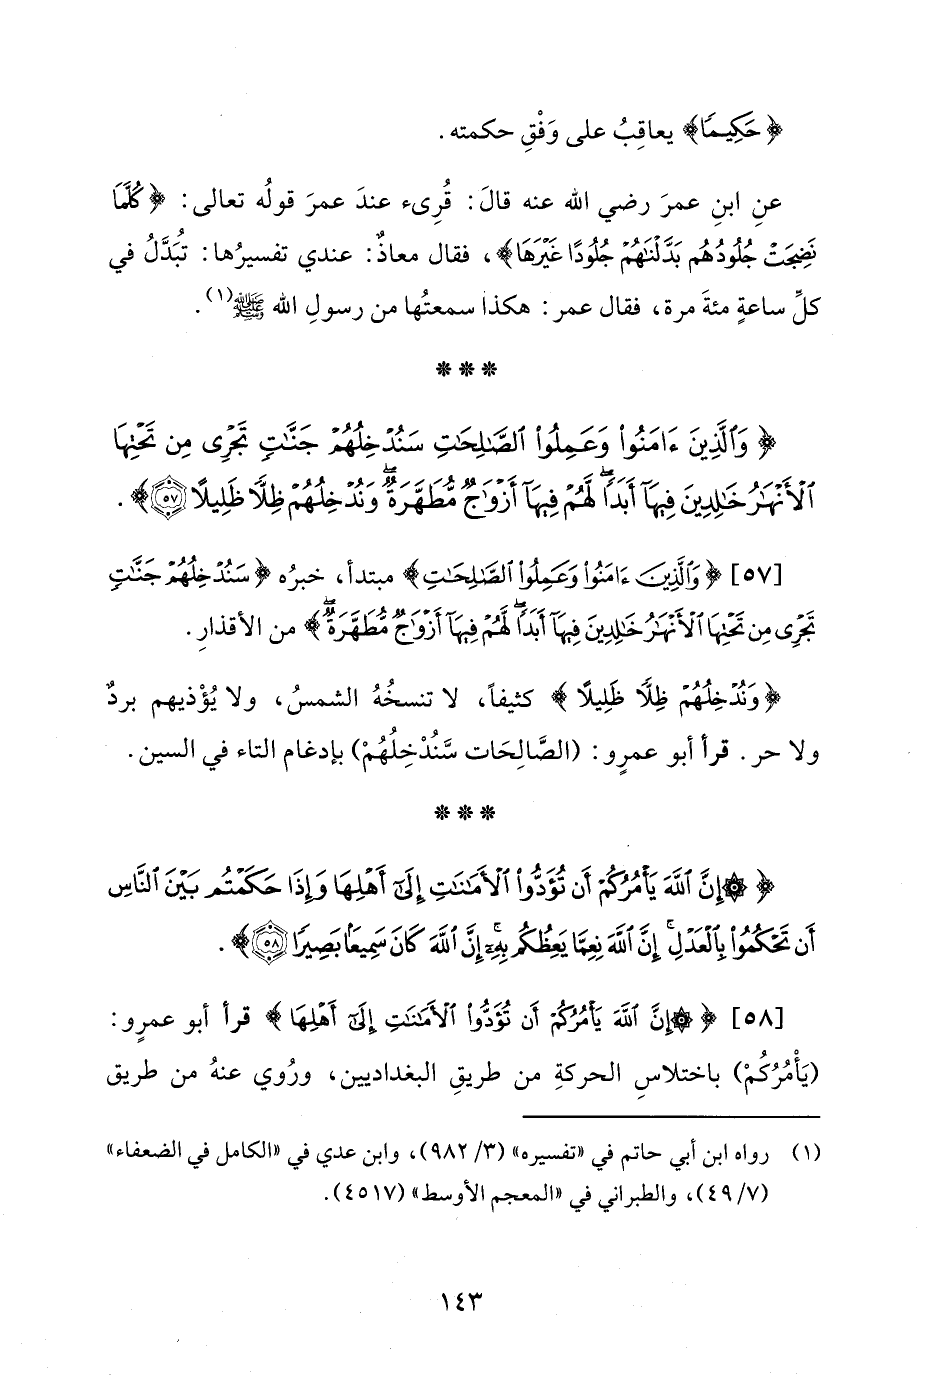 ﴿حَكِيمًا﴾ يعاقِبُ على وَفْقِ حكمته .
عنِ ابنِ عمرَ رضي الله عنه قالَ: قُرِىء عندَ عمرَ قولُه تعالى: ﴿كُلَّمَا
نَضِجَتْ جُلُودُهُم بَدَّلْنَٰهُمْ جُلُودًا غَيْرَهَا﴾، فقال معاذٌ: عندي تفسيرُها: تُبَدَّلُ في
كلِّ ساعةٍ مئةَ مرة، فقال عمر: هكذا سمعتُها من رسولِ الله ﷺ(١).
* * *
﴿وَٱلَّذِينَ ءَامَنُوا۟ وَعَمِلُوا۟ ٱلصَّٰلِحَٰتِ سَنُدْخِلُهُمْ جَنَّٰتٍ تَجْرِى مِن تَحْتِهَا
ٱلْأَنْهَٰرُ خَٰلِدِينَ فِيهَآ أَبَدًۭا ۖ لَّهُمْ فِيهَآ أَزْوَٰجٌۭ مُّطَهَّرَةٌۭ ۖ وَنُدْخِلُهُمْ ظِلًّۭا ظَلِيلًا ٥٧﴾.
[٥٧] ﴿وَٱلَّذِينَ ءَامَنُوا۟ وَعَمِلُوا۟ ٱلصَّٰلِحَٰتِ﴾ مبتدأ، خبرُه ﴿سَنُدْخِلُهُمْ جَنَّٰتٍ
تَجْرِى مِن تَحْتِهَا ٱلْأَنْهَٰرُ خَٰلِدِينَ فِيهَآ أَبَدًۭا ۖ لَّهُمْ فِيهَآ أَزْوَٰجٌۭ مُّطَهَّرَةٌۭ ۖ﴾ من الأقذارِ.
﴿وَنُدْخِلُهُمْ ظِلًّۭا ظَلِيلًا﴾ كثيفاً، لا تنسخُهُ الشمسُ، ولا يُؤْذيهم بردٌ
ولا حر. قرأ أبو عمرٍو: (الصَّالِحَات سَّنُدْخِلُهُمْ) بإدغام التاء في السين.
* * *
﴿۞ إِنَّ ٱللَّهَ يَأْمُرُكُمْ أَن تُؤَدُّوا۟ ٱلْأَمَٰنَٰتِ إِلَىٰٓ أَهْلِهَا وَإِذَا حَكَمْتُم بَيْنَ ٱلنَّاسِ
أَن تَحْكُمُوا۟ بِٱلْعَدْلِ ۚ إِنَّ ٱللَّهَ نِعِمَّا يَعِظُكُم بِهِۦٓ ۗ إِنَّ ٱللَّهَ كَانَ سَمِيعًۢا بَصِيرًۭا ٥٨﴾.
[٥٨] ﴿۞ إِنَّ ٱللَّهَ يَأْمُرُكُمْ أَن تُؤَدُّوا۟ ٱلْأَمَٰنَٰتِ إِلَىٰٓ أَهْلِهَا﴾ قرأ أبو عمرٍو:
(يَأْمُرُكُمْ) باختلاسِ الحركةِ من طريقِ البغداديين، ورُوي عنهُ من طريق
(١) رواه ابن أبي حاتم في «تفسيره» (٣/ ٩٨٢)، وابن عدي في «الكامل في الضعفاء»
(٧/ ٤٩)، والطبراني في «المعجم الأوسط» (٤٥١٧).
١٤٣